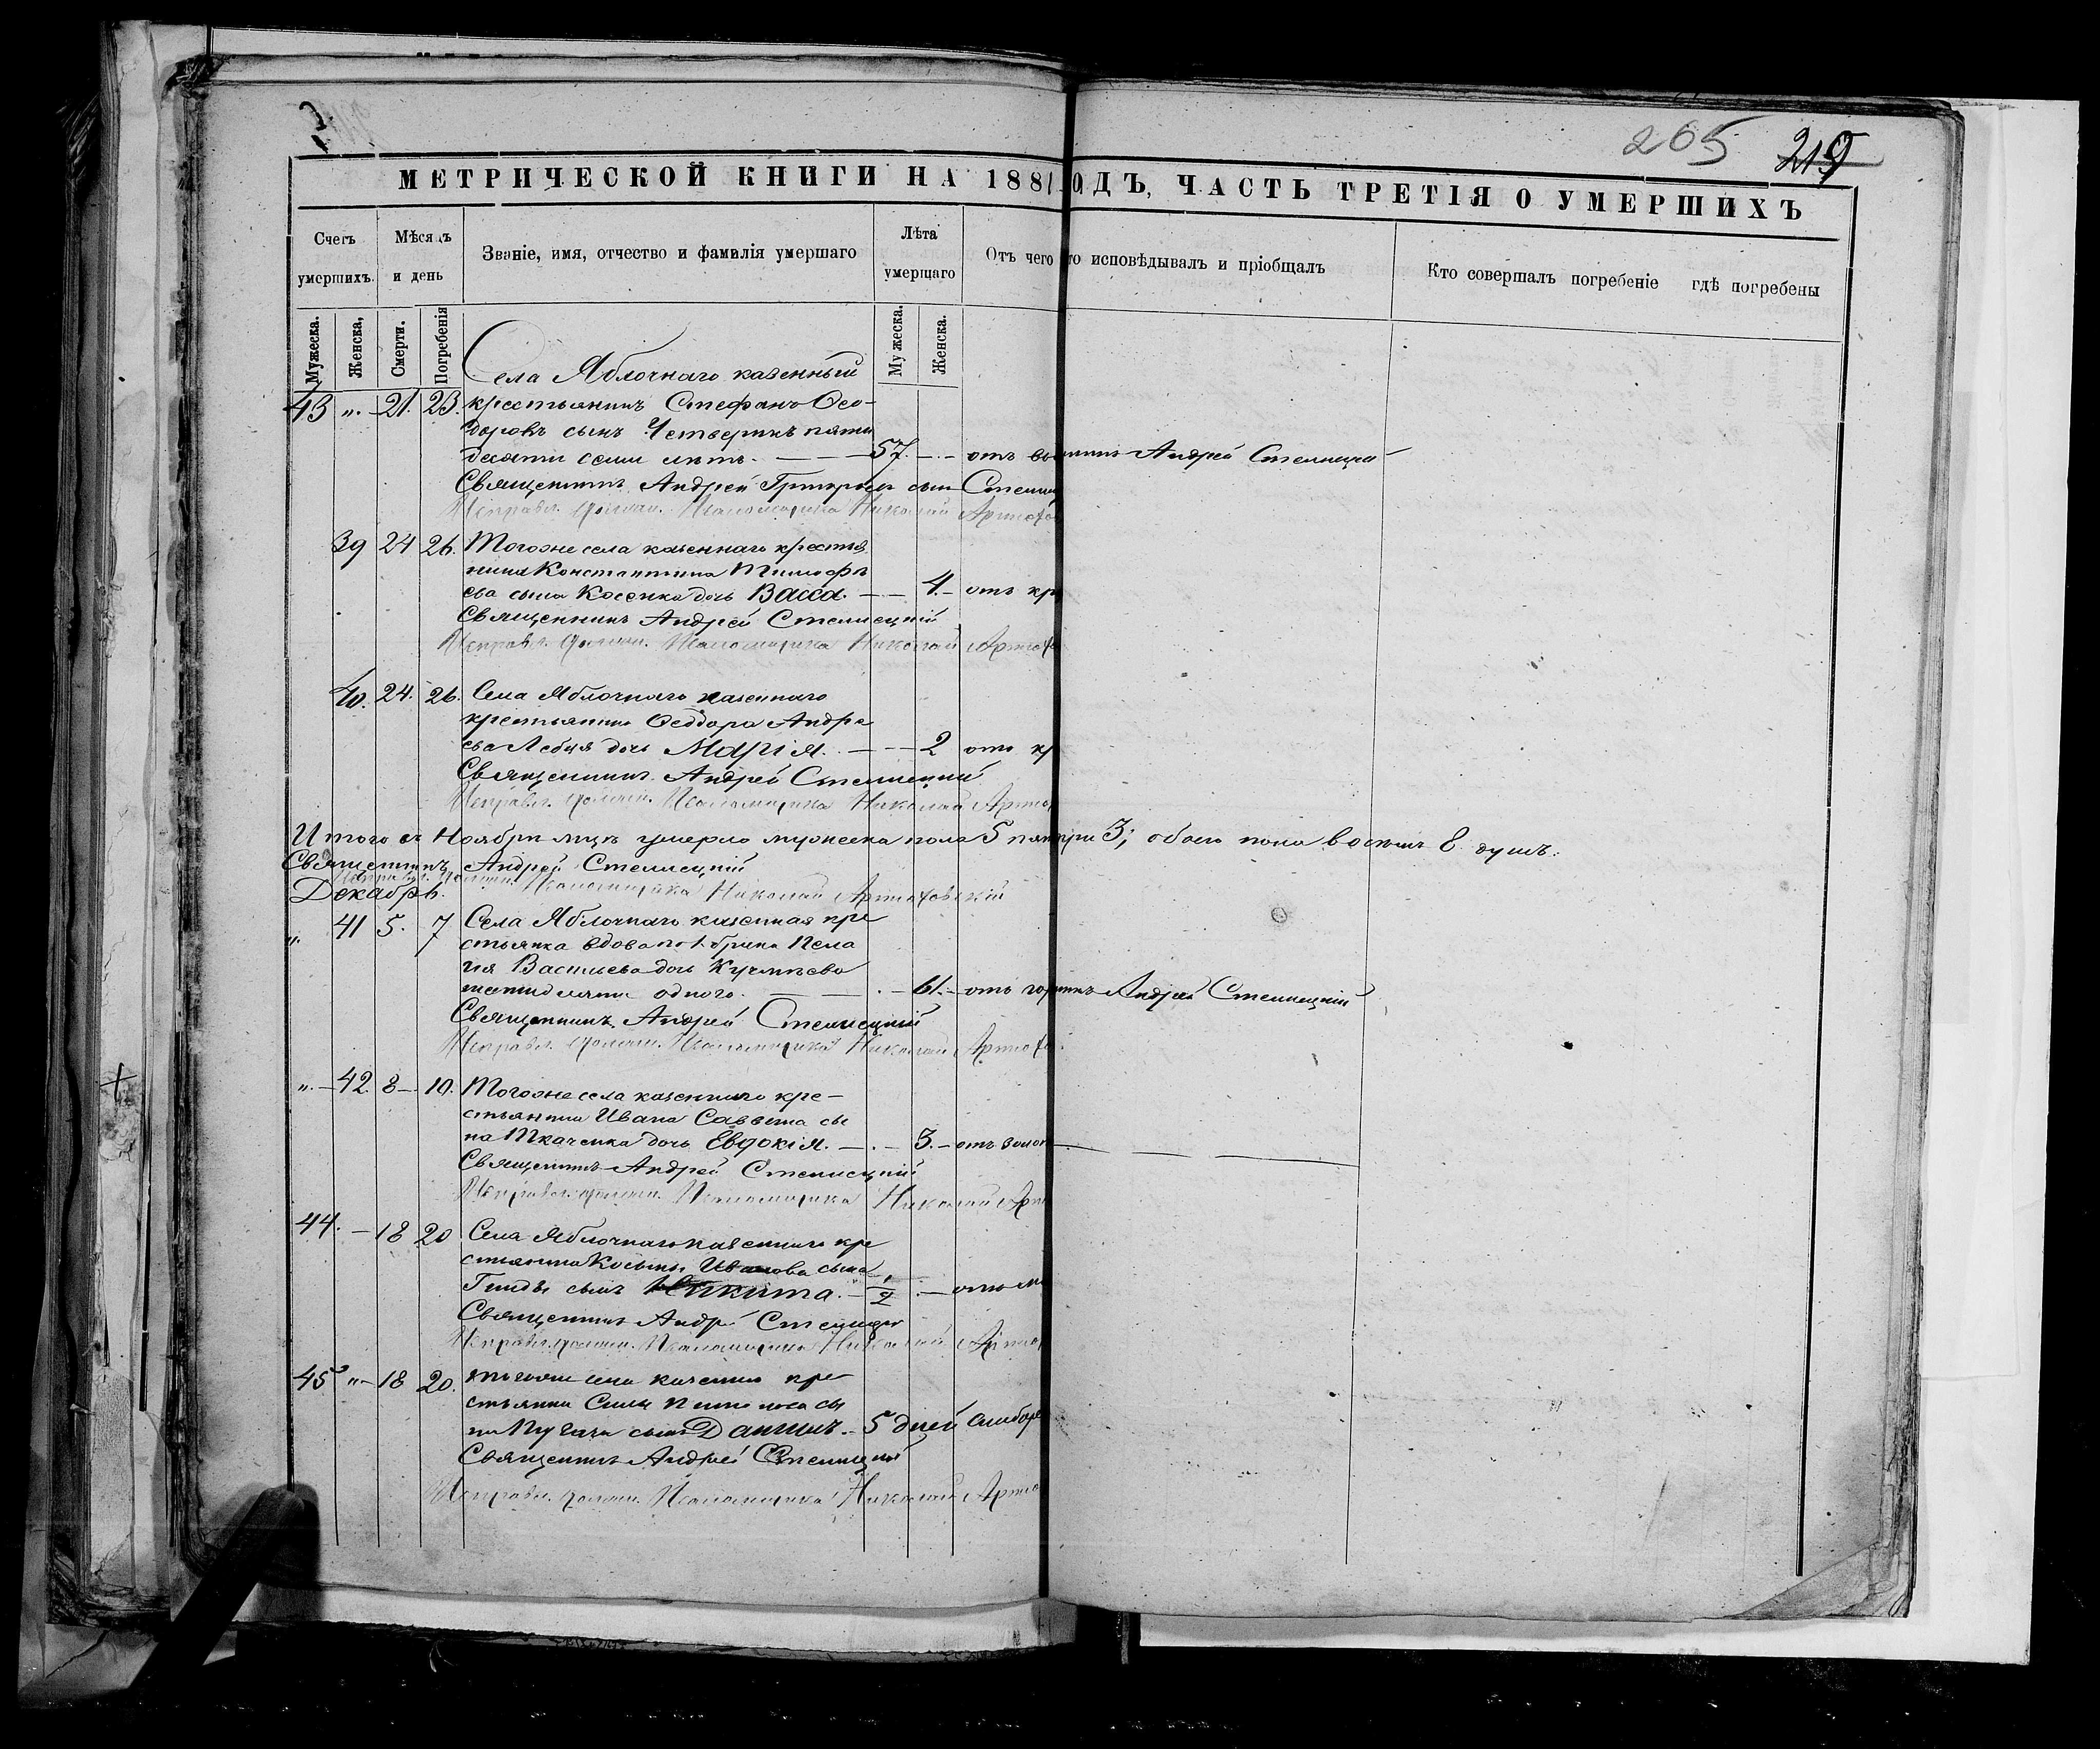 265 219
МЕТРИЧЕСКОЙ КНИГИ НА 1881 ОДЪ, ЧАСТЬ ТРЕТІЯ О УМЕРШИХЪ
Счетъ умершихъ.
Мѣсяцъ и день
Званіе, имя, отчество и фамилія умершаго
Лѣта умершаго
Отъ чего то исповѣдывалъ и пріобщалъ
Кто совершалъ погребеніе где погребены
Мужеска. Женска, Смерти. Погребенія Мужеска. Женска.
Села Яблочнаго казенный
43 „ 21. 23. крестьянинъ Стефанъ Ѳео-
доровъ сынъ Четверикъ пяти
десяти семи лѣтъ. 57. отъ Андрей
Священникъ Андрей Григорьевъ сынъ
Исправл. должн. Псаломщика Николай
39 24 26. Тогоже села казеннаго крестья
нина Константина Тимофѣ
ева сына Косенка дочь Васса. 4. отъ кр
Священникъ Андрей Стеллецкій
Исправл. должн. Псаломщика Николай
40. 24. 26. Села Яблочнаго казеннаго
крестьянина Ѳеодора Андре
ева дочь Марія. 2 отъ кр
Священникъ Андрей Стеллецкій
Исправл. должн. Псаломщика Николай
Итого въ Ноябрѣ мцѣ умерло мужеска пола 5 три 3; обоего пола восемь 8 душъ.
Священникъ Андрей Стеллецкій
Исправл. должн. Псаломщика Николай Артюховскій
Декабрь.
„ 41 5. 7 Села Яблочнаго казенная кре
стьянка вдова по 1. браку Пела
гія Васильева дочь
одного. 61. отъ Андрей Стеллецкій
Священникъ Андрей Стеллецкій
Исправл. должн. Псаломщика Николай
„ 42. 8 10. Тогоже села казеннаго кре-
стьянина Ивана Саввина сы
на Ткаченка дочь Евдокія. 3. отъ
Священникъ Андрей Стеллецкій
Исправл. должн. Псаломщика Николай
44. 18 20 Села Яблочнаго казеннаго кре
стьянина Косьмы Иванова сына
сынъ Никита. 1/2 отъ
Священникъ Андрей
Исправл. должн. Псаломщика Николай
45 „ 18 20. Тогоже села казеннаго кре
стьянина сы
на сынъ Даніилъ. 5 дней
Священникъ Андрей Стеллецкій
Исправл. должн. Псаломщика Николай